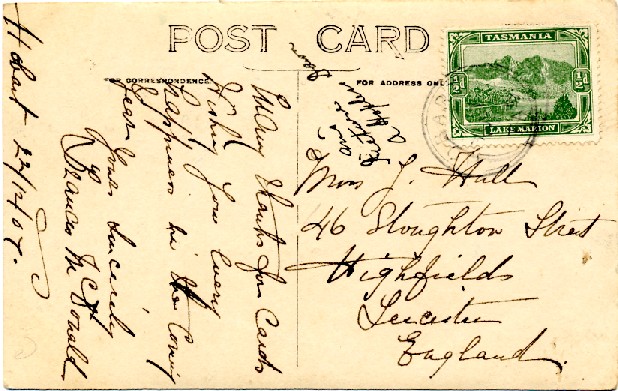 POST CARD
CORRESPONDENCE
FOR ADDRESS ONLY
TASMANIA
½d ½d
LAKE MARION
Hobart 22/12/07.
Many thanks for Cards
Wishing you every
happiness in the Coming
Year
Yours Sincerely
Frances McDonald
J. Hull
46 Stoughton Street
Highfields
Leicester
England.